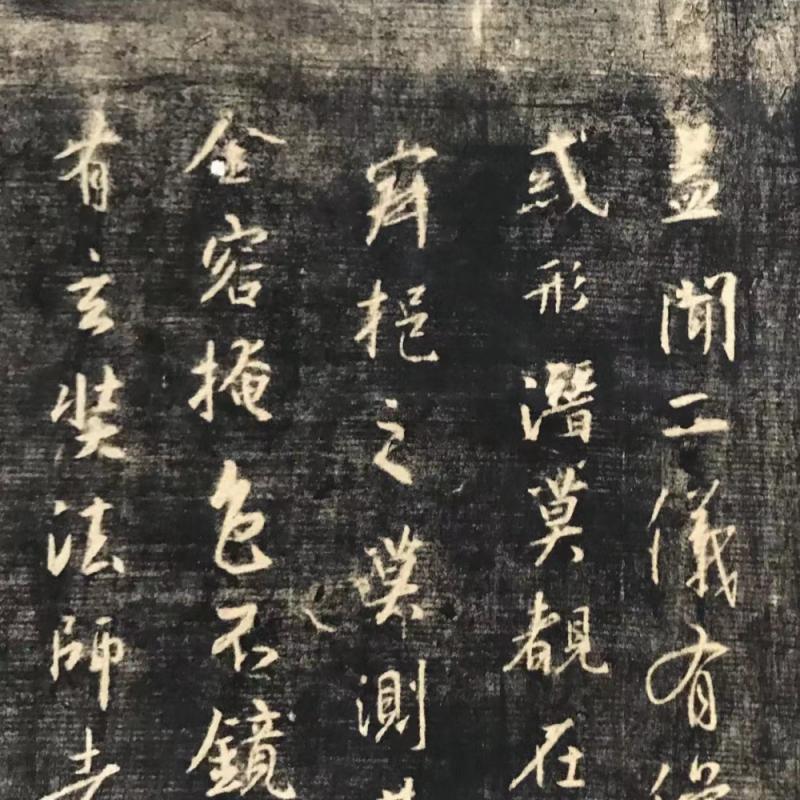 盖聞二儀有
惑形潛莫覩在
寂挹之莫測
金容掩色不鏡
有玄奘法師